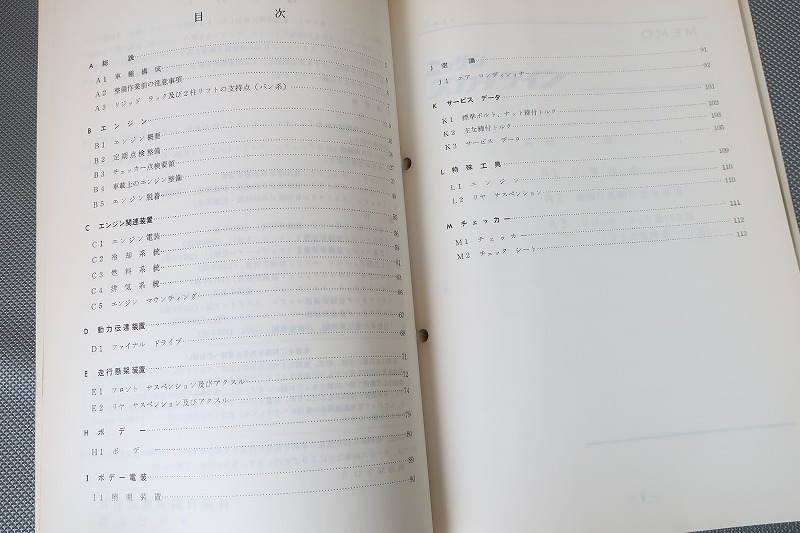 目 次
A 総 説
A1 車種構成
A2 整備作業前の注意事項
A3 リジッド ラック及び2柱リフトの支持点（バン系）
B エンジン
B1 エンジン概要
B2 定期点検整備
B3 チェッカー点検要領
B4 車載上のエンジン整備
B5 エンジン脱着
C エンジン関連装置 55
C1 エンジン電装 56
C2 冷却系統 59
C3 燃料系統 61
C4 排気系統 63
C5 エンジン マウンティング 66
D 動力伝達装置 67
D1 ファイナル ドライブ 68
E 走行懸架装置 71
E1 フロント サスペンション及びアクスル 72
E2 リヤ サスペンション及びアクスル 74
H ボデー 79
H1 ボデー 80
I ボデー電装 89
I1 照明装置 90
MEMO
J 空 調 91
J1 エア コンディショナー 92
K サービス データ 101
K1 標準ボルト、ナット締付トルク 102
K2 主な締付トルク 103
K3 サービス データ 105
L 特殊工具 109
L1 エンジン 110
L2 リヤ サスペンション 110
M チェッカー 111
M1 チェッカー 112
M2 チェック シート 113